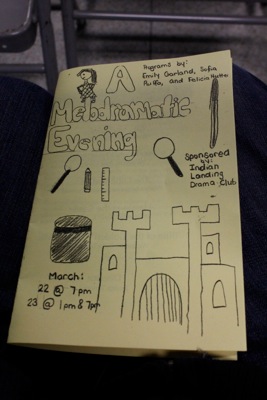 A
Melodramatic
Evening
Programs by:
Emily Garland, Sofia
and Felicia
Sponsored
by:
Indian
Landing
Drama Club
March:
22 @ 7 pm
23 @ 1pm & 7pm